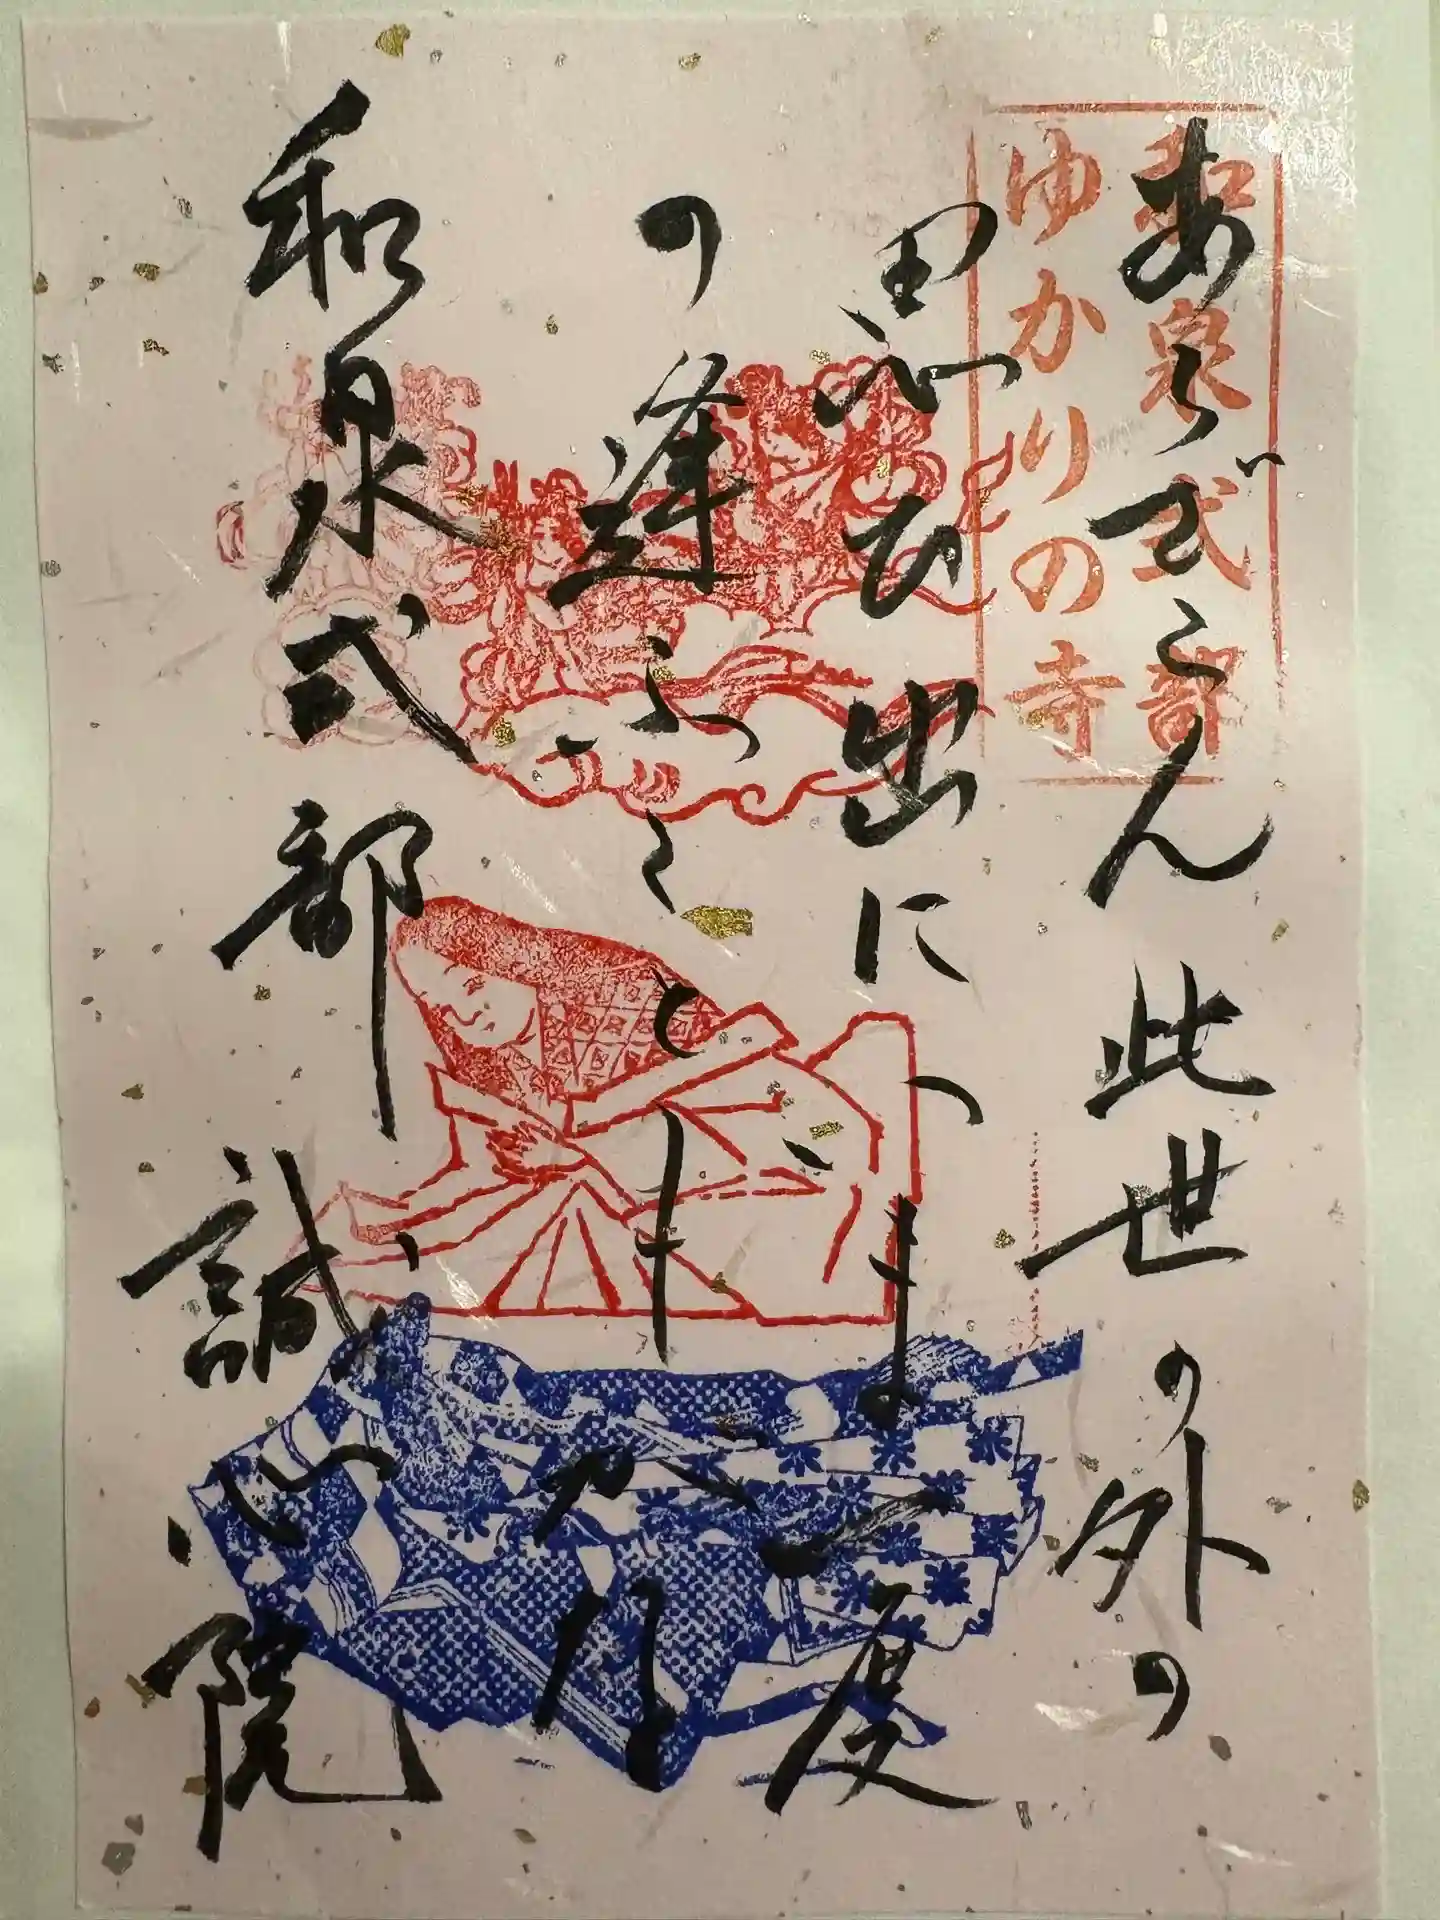 あらざらん此世の外の
思ひ出にいま一度
の逢ふこともがな
和泉式部 誠心院
和泉式部
ゆかりの寺